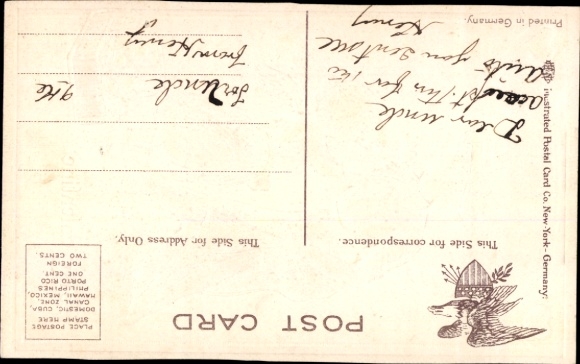 POST CARD
PLACE POSTAGE
STAMP HERE
DOMESTIC, CUBA,
CANAL ZONE,
HAWAII, MEXICO,
PHILIPPINES
PORTO RICO
ONE CENT.
FOREIGN
TWO CENTS.
This Side for correspondence.
This Side for Address Only.
Dear uncle
for
you sent me
Henry
For Uncle
from Henry
Illustrated Postal Card Co. New-York - Germany.
Printed in Germany.